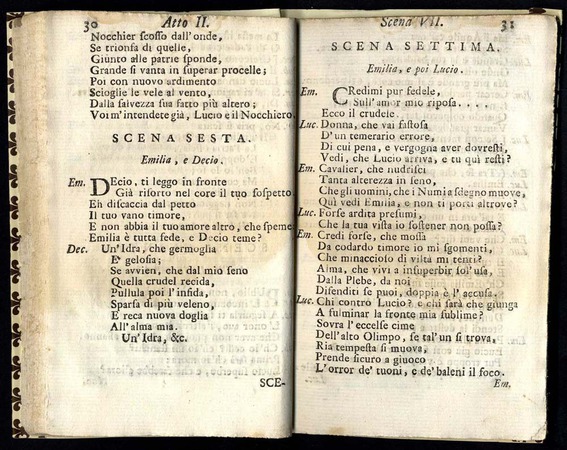 30 Atto II.
Nocchier scosso dall'onde,
Se trionfa di quelle,
Giunto alle patrie sponde,
Grande si vanta in superar procelle;
Poi con nuovo ardimento
Scioglie le vele al vento,
Dalla salvezza sua fatto più altero;
Voi m'intendete già, Lucio e il Nocchiero.
SCENA SESTA.
Emilia, e Decio.
Em. DEcio, ti leggo in fronte
Già risorto nel core il tuo sospetto
Eh discaccia dal petto
Il tuo vano timore,
E non abbia il tuo amore altro, che speme
Emilia è tutta fede, e Decio teme?
Dec. Un'Idra, che germoglia
E' gelosia;
Se avvien, che dal mio seno
Quella crudel recida,
Pullula poi l'infida,
Sparsa di più veleno,
E reca nuova doglia
All'alma mia.
Un'Idra, &c.
SCE-
Scena VII. 31
SCENA SETTIMA.
Emilia, e poi Lucio.
Em. CRedimi pur fedele,
Sull'amor mio riposa....
Ecco il crudele.
Luc. Donna, che vai fastosa
D'un temerario errore,
Di cui pena, e vergogna aver dovresti,
Vedi, che Lucio arriva, e tu quì resti?
Em. Cavalier, che nudrisci
Tanta alterezza in seno,
Che gli uomini, che i Numi a sdegno muove,
Quì vedi Emilia, e non ti porti altrove?
Luc. Forse ardita presumi,
Che la tua vista io sostener non possa?
Em. Credi forse, che mossa
Da codardo timore io mi sgomenti,
Che minaccioso di viltà mi tenti?
Alma, che vivi a insuperbir sol'usa,
Dalla Plebe, da noi
Difenditi se puoi, doppia è l'accusa.
Luc. Chi contrò Lucio? e chi sarà che giunga
A fulminar la fronte mia sublime?
Sovra l'eccelse cime
Dell'alto Olimpo, se tal'un si trova,
Ria tempesta si muova,
Prende sicuro a giuoco
L'orror de' tuoni, e de' baleni il foco.
Em.